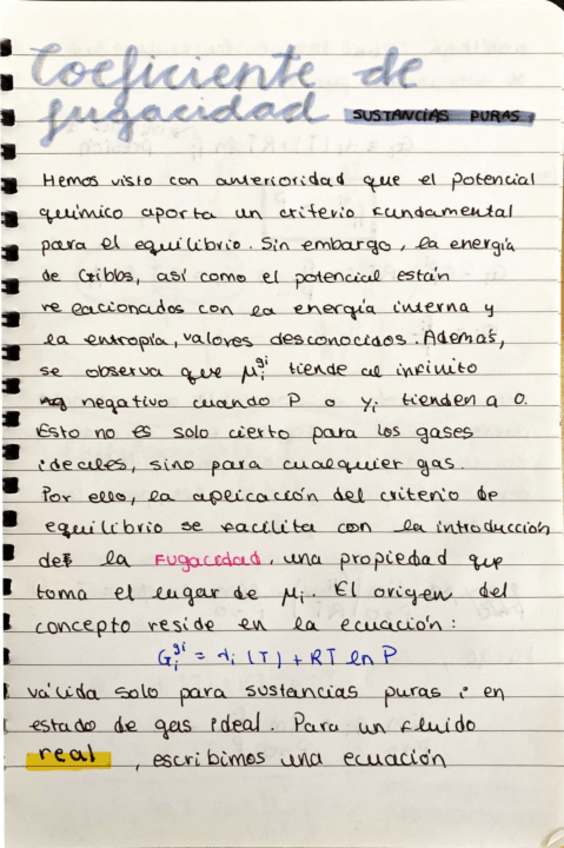 Coeficiente de
fugacidad SUSTANCIAS PURAS
Hemos visto con anterioridad que el potencial
químico aporta un criterio fundamental
para el equilibrio. Sin embargo, la energía
de Gibbs, así como el potencial están
relacionados con la energía interna y
la entropía, valores desconocidos. Además,
se observa que μᵢᵍⁱ tiende al infinito
negativo cuando P o yᵢ tienden a 0.
Esto no es solo cierto para los gases
ideales, sino para cualquier gas.
Por ello, la aplicación del criterio de
equilibrio se facilita con la introducción
de la FUGACIDAD, una propiedad que
toma el lugar de μᵢ. El origen del
concepto reside en la ecuación:
Gᵢᵍⁱ = λᵢ (T) + RT ln P
válida solo para sustancias puras i en
estado de gas ideal. Para un fluido
real, escribimos una ecuación